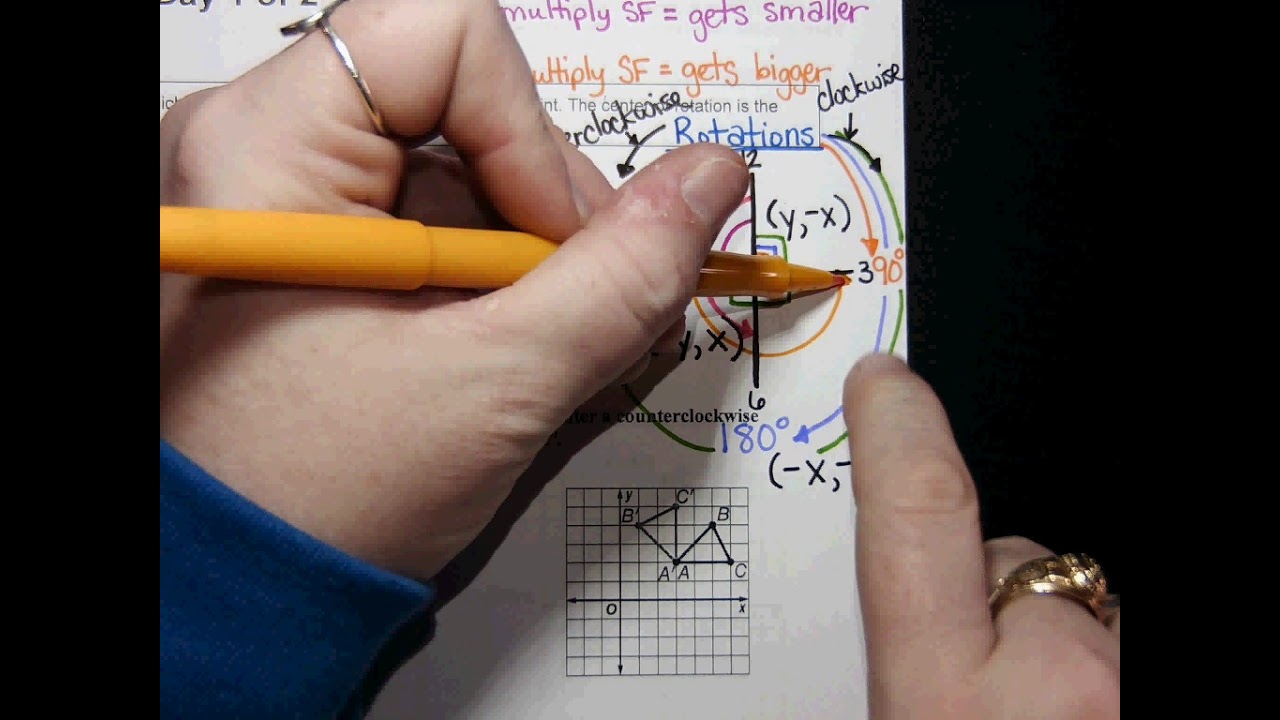 Day 1 of 2
multiply SF = gets smaller
multiply SF = gets bigger
clockwise
nt. The center rotation is the
erclockwise
Rotations
12
(y,-x)
3 90°
y, x)
6
ter a counterclockwise
180°
(-x,-
y
C'
B'
B
A' A
C
O
x